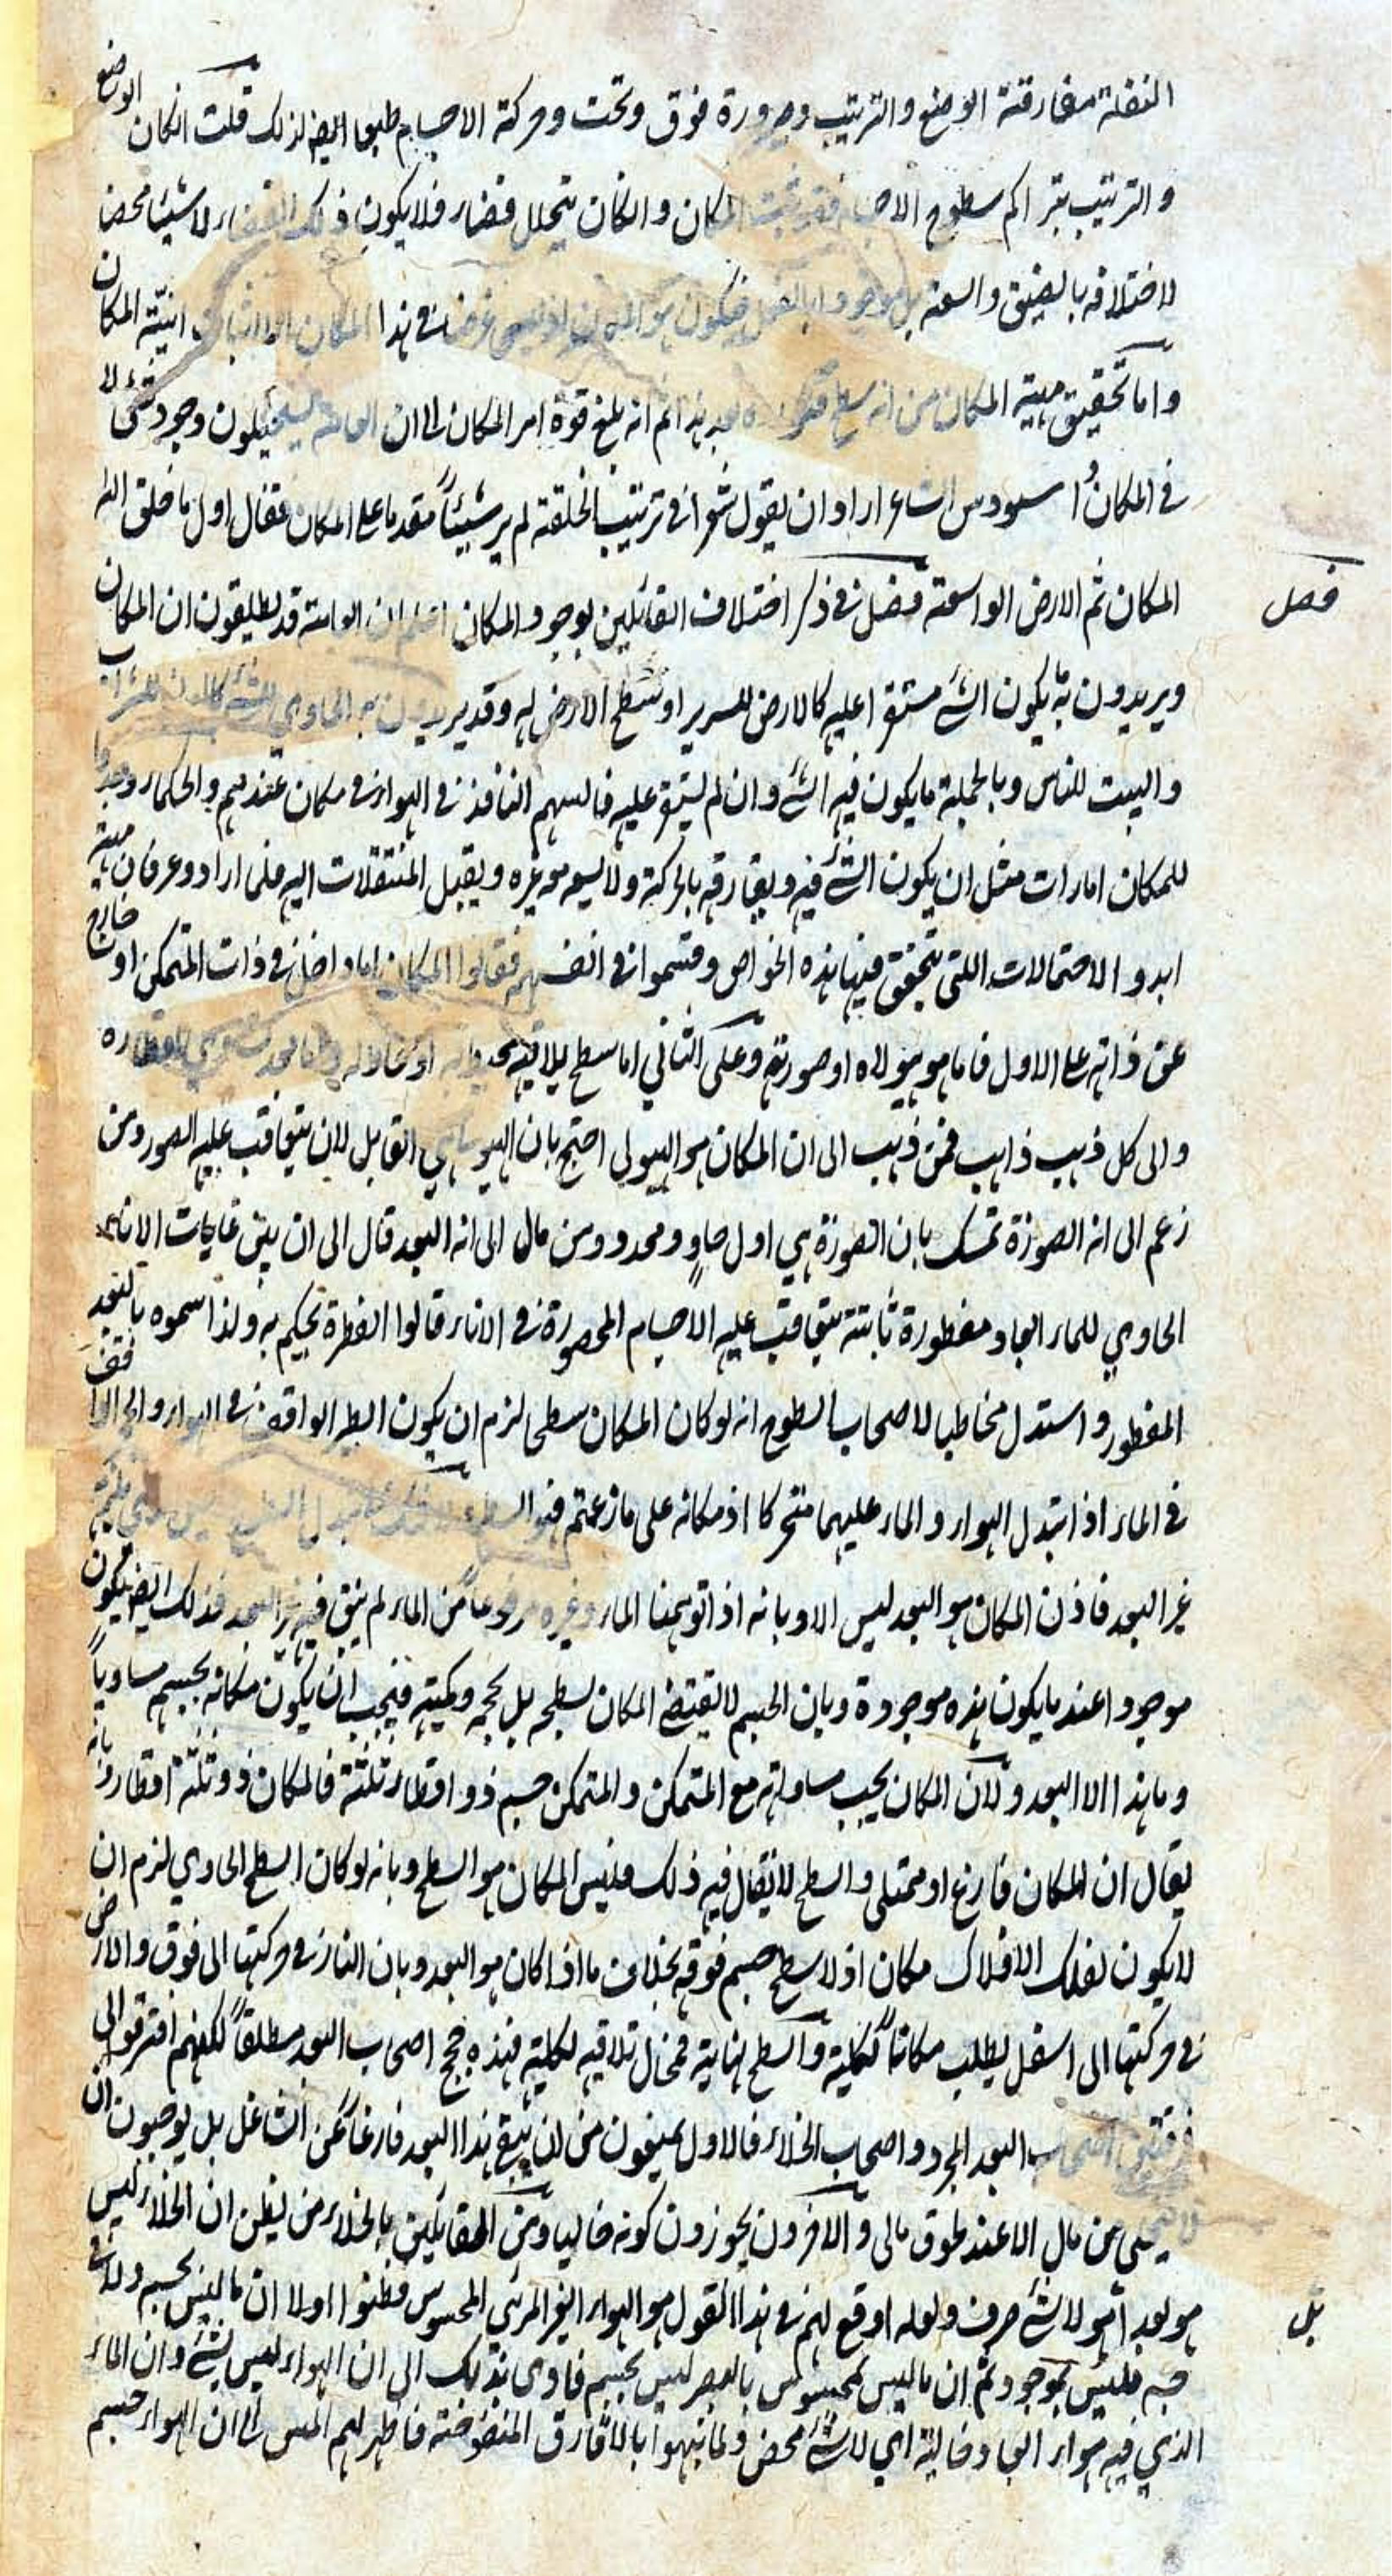 النقلة مفارقته الوضع والترتيب وصيرورة فوق وتحت وحركة الاجسام طبعا ايضا لذلك قلت المكان الوضع
والترتيب بتراكم سطوح الاجسام فقد ثبت المكان والمكان يتخلل فضاء فلا يكون ذلك الفضاء لا شيئا محضا
لاختلافه بالضيق والسعة بل موجودا بالفعل فيكون هو المكان في هذا المكان الا اثبات انيّة المكان
واما تحقيق مهية المكان من انه سطح بعد هذا ثم انه بلغ قوة امر المكان الى ان العامة يستحيلون وجود شئ لا
في المكان و اسيودس الشاعر اراد ان يقول شعرا في ترتيب الخلقة لم ير شيئاً مقدما على المكان فقال اول ما خلق الله
المكان ثم الارض الواسعة فصل في ذكر اختلاف القائلين بوجود المكان اعلم ان العامة قد يطلقون ان المكان
فصل
ويريدون به ما يكون الشئ مستقرا عليه كالارض للسرير او سطح الارض له وقد يريدون به الحاوي للشئ كالدن للشراب
والبيت للناس وبالجملة ما يكون فيه الشئ وان لم يستقر عليه فالسهم النافذ في الهواء في مكان عندهم والحكماء وجدوا
للمكان امارات مثل ان يكون الشئ فيه ويفارقه بالحركة ولا يسعه معه غيره ويقبل المنتقلات اليه فلما ارادوا عرفان مهيته
ابدوا الاحتمالات اللتي يتحقق فيها هذه الخواص وقسموا في انفسهم فقالوا المكان اما داخل في ذات المتمكن او خارج
عن ذاته على الاول فاما هو هيولاه او صورته وعلى الثاني اما سطح يلاقيه واما بعد يساوي اقطاره
والى كل ذهب ذاهب فمن ذهب الى ان المكان هو الهيولى احتج بان الهيولى هي القابل لان يتعاقب عليه الصور ومن
زعم الى انه الصورة تمسك بان الصورة هي اول حاوٍ ومحدد ومن مال الى انه البعد قال الى ان بين غايات الاناء
الحاوي للماء ابعاد مفطورة ثابتة يتعاقب عليه الاجسام المحصورة في الاناء قالوا الفطرة تحكيم به ولذا سموه بالبعد
المفطور و استدل مخاطبا لاصحاب السطوح انه لو كان المكان سطحى لزم ان يكون الطير الواقف في الهواء والحجر الواقف
في الماء اذا تبدل الهواء والماء عليهما متحركا اذ مكانه على ما زعمتم هو السطح
غير البعد فاذن المكان هو البعد ليس الا و بانه اذا توهمنا الماء وغيره مرفوعاً من الماء لم يبق فيه غير البعد فذلك ايضا يكون
موجودا عند ما يكون هذه موجودة وبان الجسم لا يقتضي المكان بسطحه بل بحجمه وكميته فيجب ان يكون مكانه بجسيم مساوياً
وما هذا الا البعد ولان المكان يجب مساواته مع المتمكن والمتمكن جسم ذو اقطار ثلثة فالمكان ذو ثلثة اقطار وبانه
يقال ان المكان فارغ او ممتلى والسطح لا يقال فيه ذلك فليس المكان هو السطح وبانه لو كان السطح الحاوي لزم ان
لا يكون لفلك الافلاك مكان اذ لا سطح جسم فوقه بخلاف ما اذا كان هو البعد وبان النار في حركتها الى فوق والارض
في حركتها الى اسفل يطلب مكاناً لكلية والسطح نهاية فمحال تلاقيه لكلية فهذه حجج اصحاب البعد مطلقاً لكنهم افترقوا الى
فرقتين اصحاب البعد المجرد و اصحاب الخلاء فالاول يمنعون من ان يبقى هذا البعد فارغا عن الشاغل بل يوجبون ان
لا يتخلى عن مال الا عند طوق مالى والاخرون يجوزون كونه خاليا ومن القائلين بالخلاء من يظن ان الخلاء ليس
هو بعد اً هو لا شئ صرف ولعله اوقع لهم في هذا القول هو الهواء الغير المرئي المحسوس فظنوا اولا ان ما ليس بجسم ولا في
بل
جسم فليس بموجود ثم ان ما ليس بمحسوس بالبصر ليس بجسم فاوى بذلك الى ان الهواء ليس بشئ وان الماء
الذي فيه هواء ابعاد خالية اي لا شئ محض ولما نبهوا بالازقاق المنفوخة فاظهر لهم المس الى ان الهواء جسم